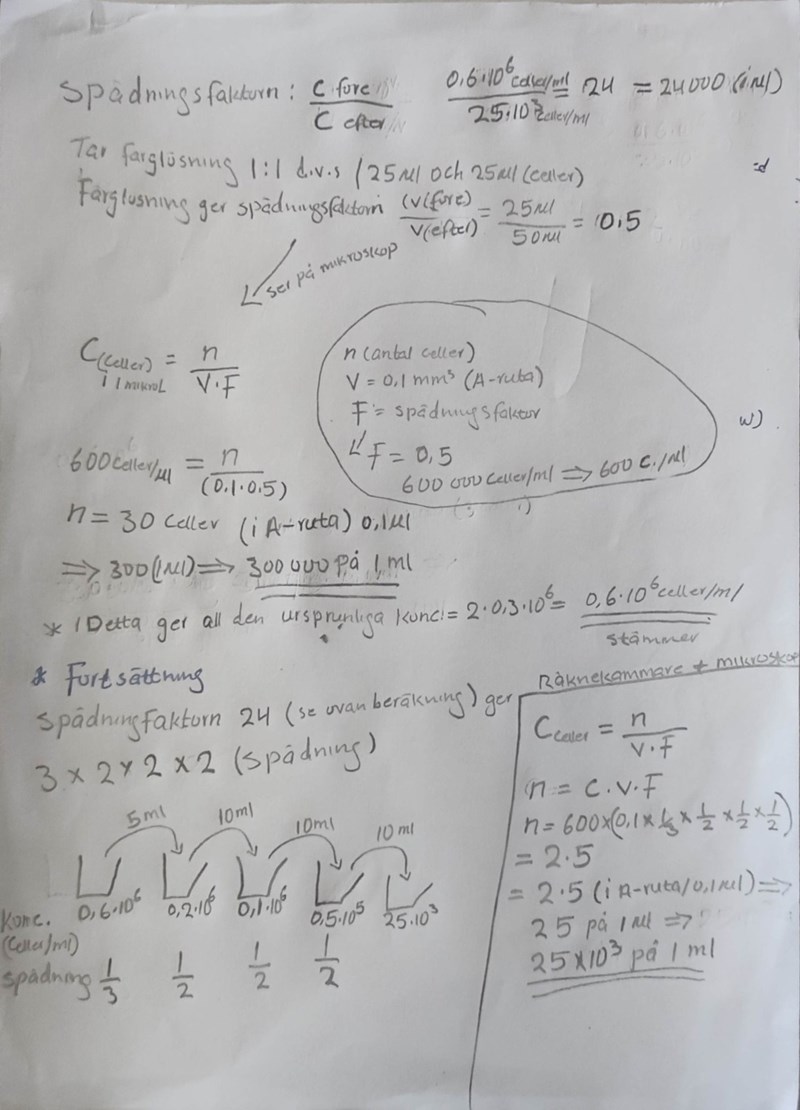 Spädningsfaktorn: C före / C efter   0,6·10⁶ celler/ml / 25·10³ celler/ml = 24 = 24000 (i µl)
Tar färglösning 1:1 d.v.s / 25 µl och 25 µl (celler)
Färglösning ger spädningsfaktorn (V(före) / V(efter) = 25 µl / 50 µl = 0,5
ser på mikroskop
C(celler) i 1 mikroL = n / V·F
n (antal celler)
V = 0,1 mm³ (A-ruta)
F = spädningsfaktor
F = 0,5
600 000 celler/ml ⇒ 600 c./µl
600 celler/µl = n / (0,1·0,5)
n = 30 celler (i A-ruta) 0,1 µl
⇒ 300 (1 µl) ⇒ 300 000 på 1 ml
* / Detta ger all den ursprunliga konc. = 2·0,3·10⁶ = 0,6·10⁶ celler/ml
stämmer
* Fortsättning
Spädningfaktorn 24 (se ovan beräkning) ger
3 × 2 × 2 × 2 (spädning)
5ml 10ml 10ml 10ml
Konc. (celler/ml) 0,6·10⁶ 0,2·10⁶ 0,1·10⁶ 0,5·10⁵ 25·10³
spädning 1/3 1/2 1/2 1/2
Räknekammare + mikroskop
Cceller = n / V·F
n = C.V.F
n = 600×(0,1×1/3×1/2×1/2×1/2)
= 2.5
= 2.5 (i A-ruta/0,1 µl) ⇒
25 på 1 µl ⇒
25×10³ på 1 ml